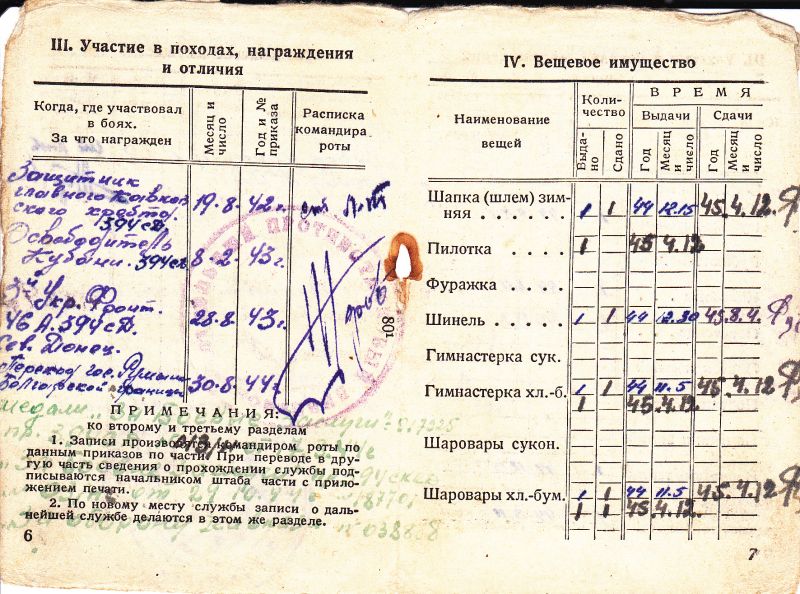 III. Участие в походах, награждения
и отличия
Когда, где участвовал
в боях.
За что награжден
Месяц и
число
Год и №
приказа
Расписка
командира
роты
Защитник
главного Кавказ
ского хребта.
394 сд
19.8. 42 г.
Освободитель
Кубани. 394 сд
8-2. 43 г.
3й Укр. Фронт.
46 А. 394 сд.
Сев. Донец.
28.8. 43 г.
Переход гос. Румыно
болгарской границы
30.8. 44 г.
801
ПРИМЕЧАНИЯ:
ко второму и третьему разделам
1. Записи производятся командиром роты по
данным приказов по части. При переводе в дру-
гую часть сведения о прохождении службы под-
писываются начальником штаба части с прило-
жением печати.
2. По новому месту службы записи о даль-
нейшей службе делаются в этом же разделе.
6
IV. Вещевое имущество
Наименование
вещей
Коли-
чество
ВРЕМЯ
Выдачи
Сдачи
Выда-
но
Сдано
Год
Месяц
и
число
Год
Месяц
и
число
Шапка (шлем) зим-
няя . . . . . . 1 1 44 12.15 45. 4. 12.
Пилотка . . . . . 1 45. 4. 12.
Фуражка . . . . .
Шинель . . . . . 1 1 44 12.30 45. 8. 4.
Гимнастерка сук. .
Гимнастерка хл.-б. 1 1 44 11.5 45. 4. 12
1 45. 4. 12.
Шаровары сукон. .
Шаровары хл.-бум. 1 1 44 11.5 45. 4. 12
1 1 45. 4. 12.
7